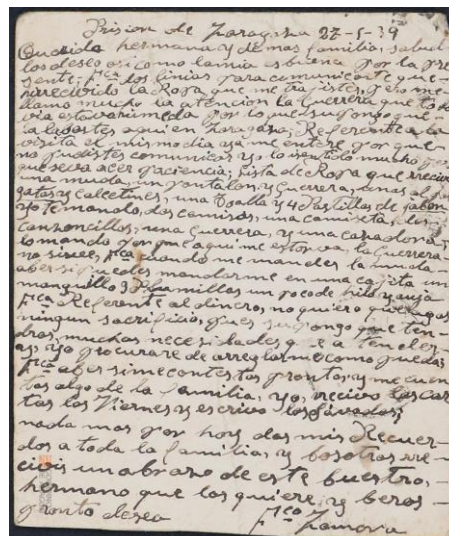 Prision de Zaragoza 27-5-39
Querida hermana y demas familia, salud
los deseo asi como la mia es buena por la pre
sente; Fca dos linias para comunicarte que
he recivido la Ropa que me trajistes, pero me
llamo mucho la atencion la Guerrera que toda
via estava umeda por lo que supongo que
la labastes aqui en Zaragoza; Referente a la
visita el mismo dia ya me entere por que
no pudistes comunicar yo lo sentido mucho, por
que sera acer paciencia; lista de Ropa que recivi
una muda, un pantalon, y Guerrera, unas alpar
gatas y calcetines, una toalla y 4 Pastillas de jabon
yo te mando, dos camisas, una camiseta, dos
canzoncillos, una Guerrera, y una cazadora,
lo mando porque aqui me estorva, la Guerrera
no sirve, Fca cuando me mandes la muda
aber si puedes mandarme en una cajita un
manguillo y Plumillas un poco de hilo y auja
Fca Referente al dinero, no quiero que agas
ningun sacrificio, pues supongo que ten
dras, muchas necesidades que atender
as, yo procurare de arreglarme como pueda;
Fca aber si me contestas pronto, y me cuen
tas algo de la familia, yo, recivo las car
tas los Viernes y escrivo los Savados;
nada mas por hoy das mis Recuer-
dos a toda la familia, y bosotros rre
civis un abrazo de este buestro,
hermano que los quiere, y beros
pronto desea Fco Zamora